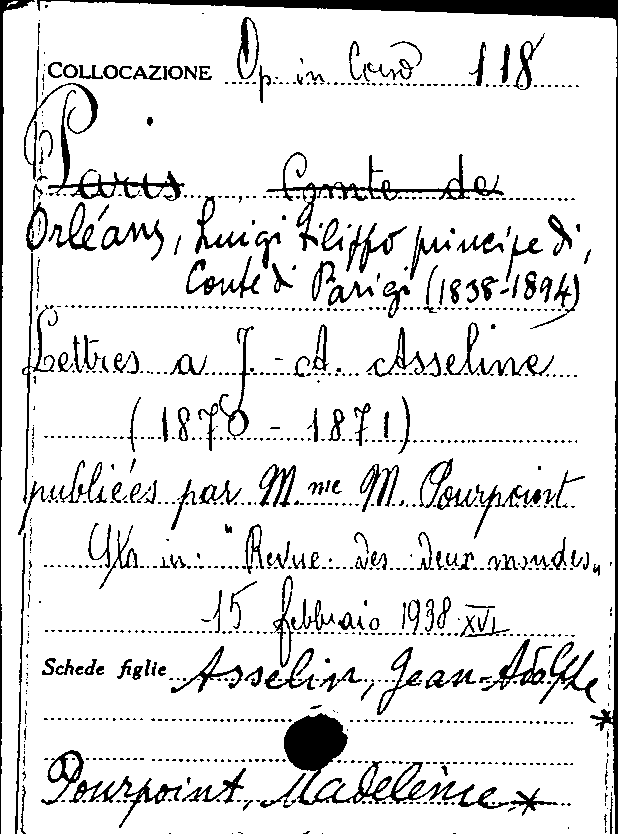 COLLOCAZIONE Op. in Corso 118
Paris, Comte de
Orléans, Luigi Filippo principe di,
Conte di Parigi (1838-1894)
Lettres a J.-A. Asseline
(1870 - 1871)
publiées par M.me M. Pourpoint
in: "Revue des deux mondes„
15 febbraio 1938 XVI
Schede figlie Asselin, Jean-Adolphe
*
Pourpoint, Madeleine *